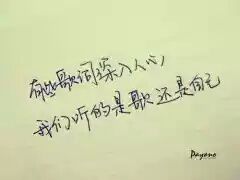 有些歌词深入人心
我们听的是歌还是自己
Payono